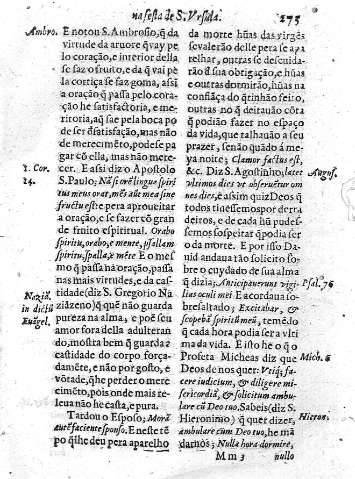 na festa de S. Vrsula.
275
Ambro.
E notou S. Ambrosio, q̃ da
virtude da aruore q̃ vay pe
lo coração, e interior della
se faz o fruito, e da q̃ vai pe
la cortiça se faz goma, assi
a oração q̃ passa pelo cora-
ção he satisfactoria, e me-
ritoria, aq̃ sae pela boca po
de ser d'satisfação, mas não
de merecimẽto, põde se pa
gar cõ ella, mas não mere-
1. Cor.
14.
cer. E assi diz o Apostolo
S. Paulo; Nã si orẽ lingua spiri
tus meus orat, mẽs aũt mea sine
fructu est: e pera aproueitar
a oração, e se fazer cõ gran
de fruito espiritual. Orabo
spiritu, orabo, e mente, psallam
spiritu, psallã, e mẽte. E o mes
mo q̃ passa na oração, passa
nas mais virtudes, e da cas-
tidade (diz S. Gregorio Na
Naziã.
in dictũ
Euãgel.
ziãzeno) q̃ quẽ não guarda
pureza na alma, e poẽ seu
amor fora della adulteran
do, mostra bem q̃ guarda ẽ
castidade do corpo força-
damẽte, e não por gosto, e
võtade, q̃ he perder o mere
cimẽto, pois onde mais re-
leua não he casta, e pura.
Tardou o Esposo; Morã
autẽ faciente sponso. E neste tẽ
po q̃ lhe deu pera aparelho
da morte hũas das virgẽs
se valerão delle pera se apa
relhar, outras se descuida-
rão de sua obrigação, e hũas
e outras dormirão, hũas na
confiãça do q̃ tinhão feito,
outras no q̃ deitauão cõta
q̃ podião fazer no espaço
da vida, que talhauão a seu
prazer, senão quãdo á me-
ya noite; Clamor factus est,
&c. Diz S. Agostinho, latet
Augus.
vltimos dies vt obseruetur om
nes dies, e assim quiz Deos q̃
todos tiuessemos por derra
deiro, e de cada hũ pudes-
semos sospeitar q̃ podia ser
o da morte. E por isso Da-
uid andaua tão solicito so-
bre o cuydado de sua alma
q̃ dizia; Anticipauerunt vigi-
Psal. 76
lias oculi mei E acordaua so-
bresaltado; Exercitabar, &
scopebã spiritũ meũ, temẽ.lo q̃
cada hora podia ser a vlti
ma da vida. E isto he o q̃
Profeta Micheas diz que
Mich. 6
Deos de nos quer: Vtiq; fa-
cere iudicium, & diligere mi-
sericordiã, & solicitum ambu-
lare cũ Deo tuo. Sabeis (diz S.
Hieronimo) q̃ quer dizer,
Hieron.
ambulare cum Deo tuo, he mã
darnos; Nulla hora dormire,
M m 3
nullo